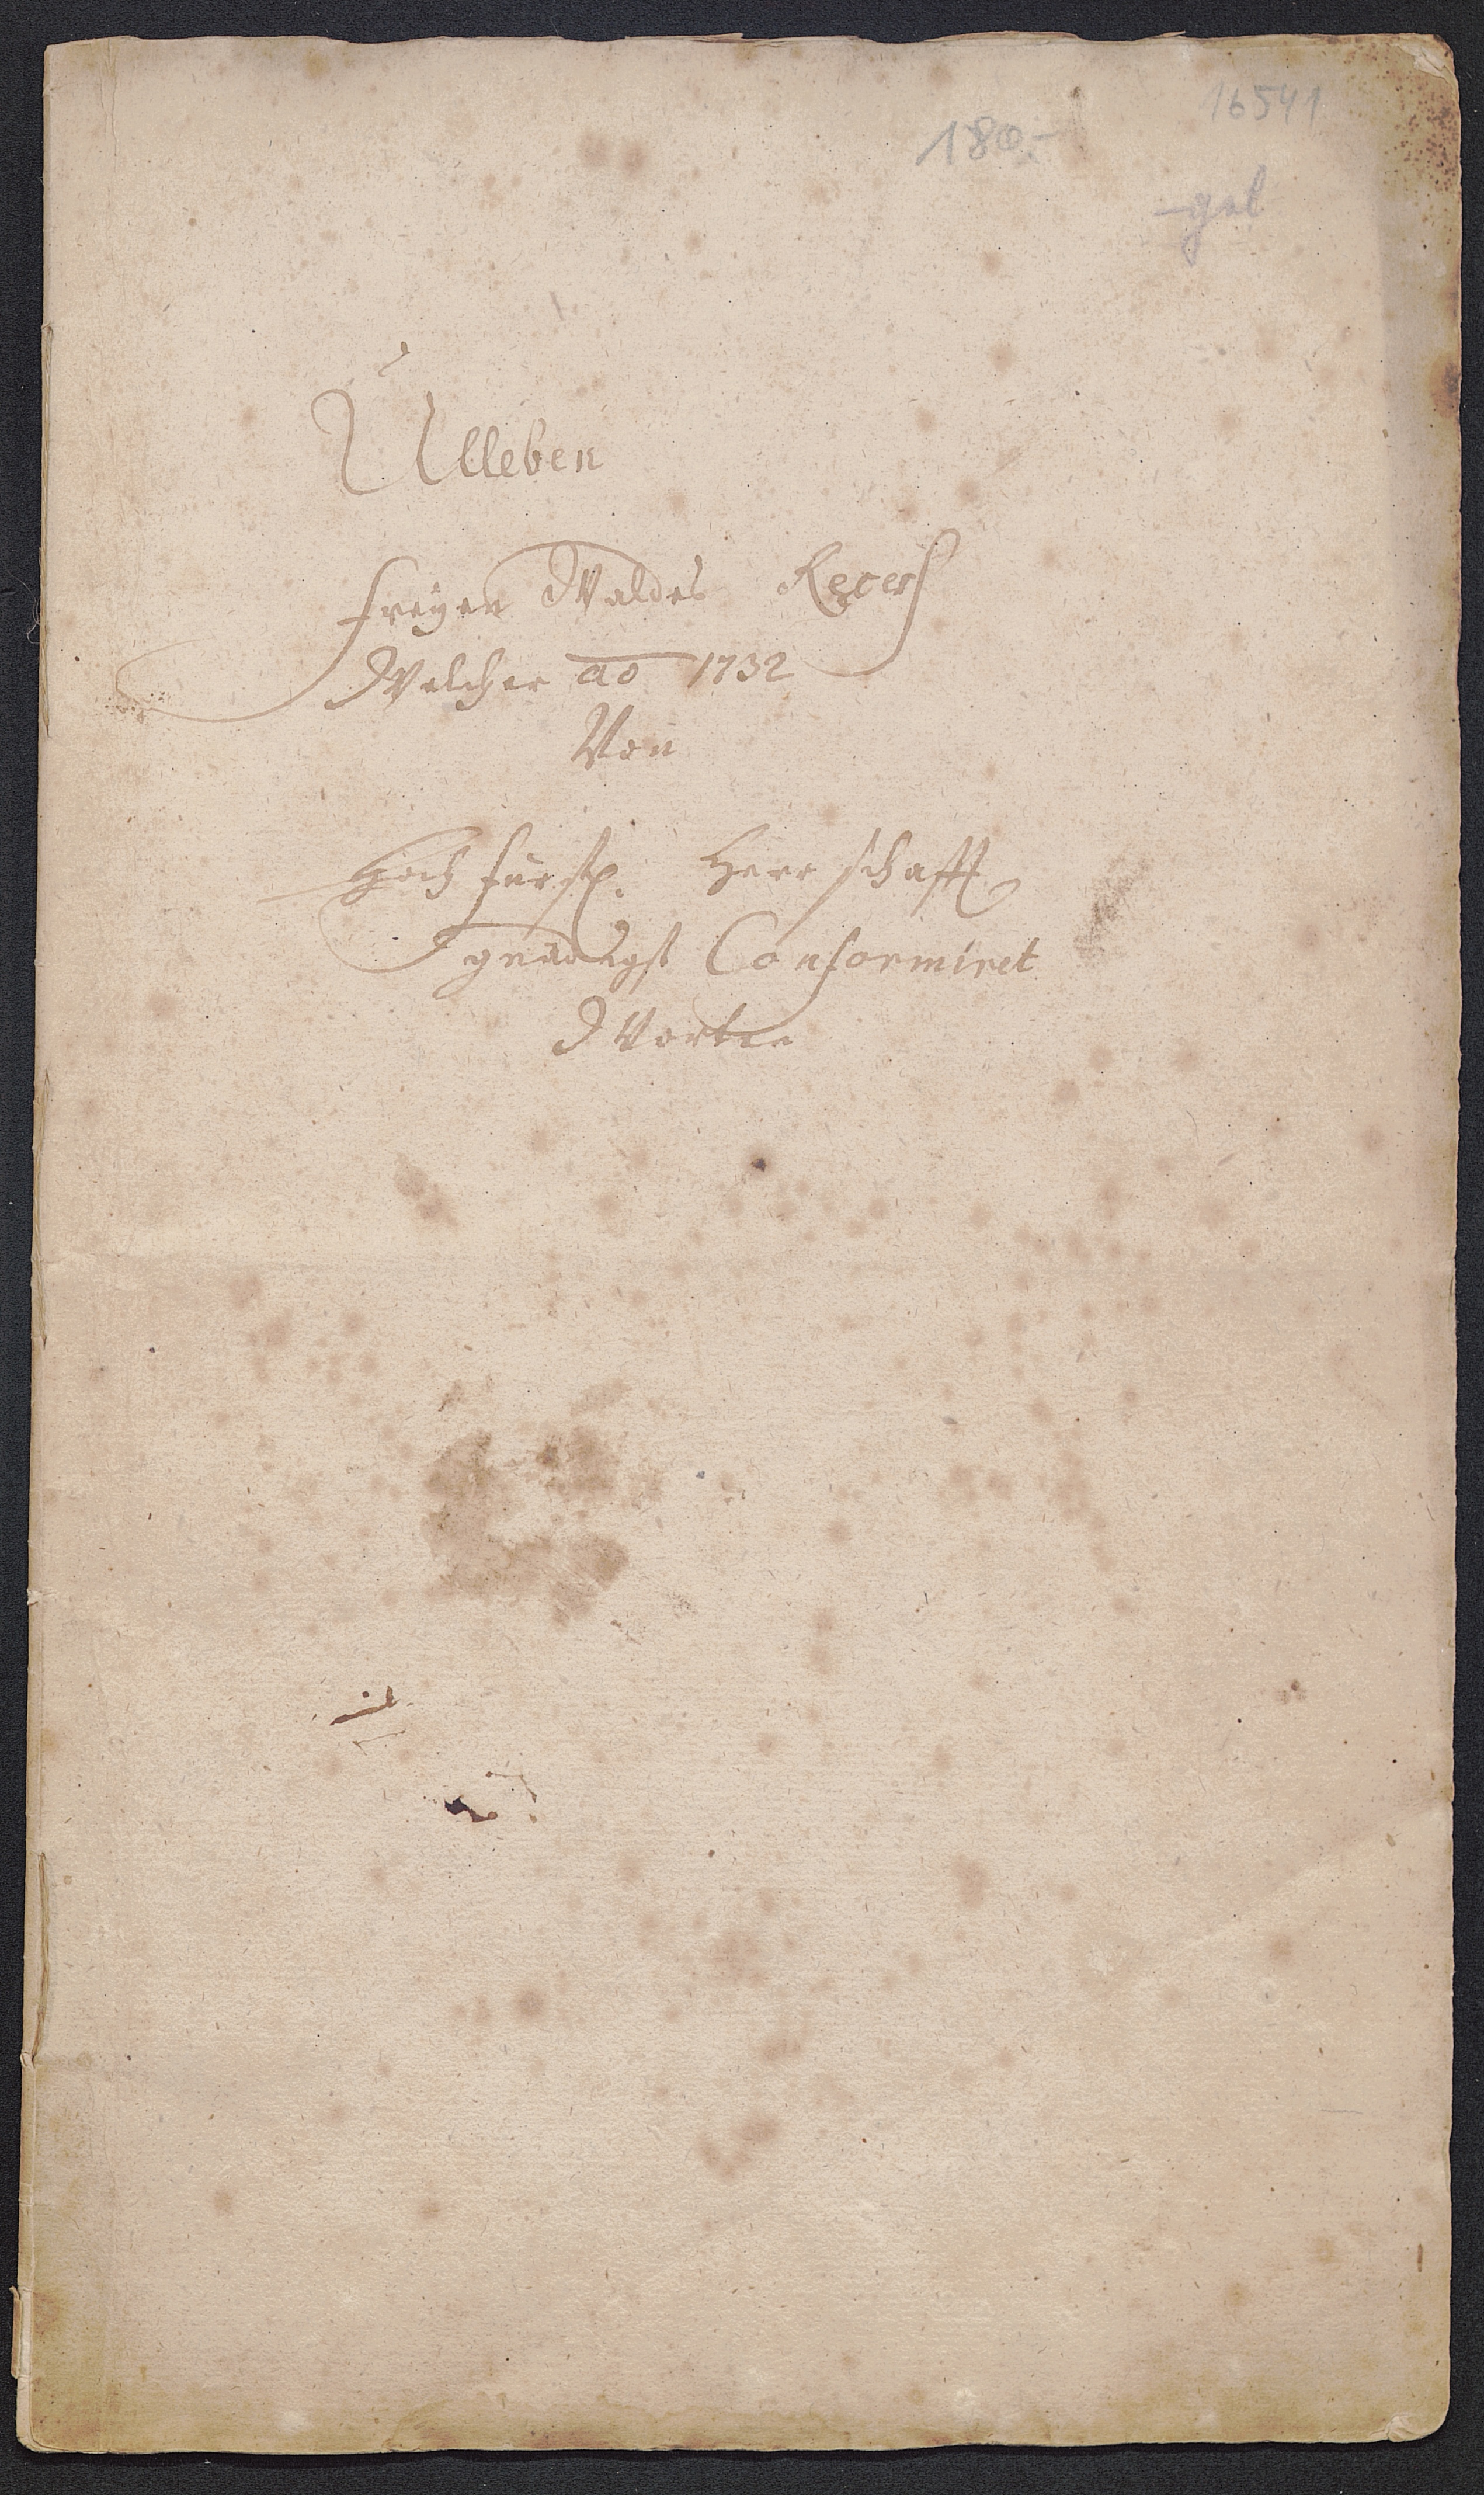 16541
180.-
gel
Ülleben
Freyen Waldes Recess
Welcher ao 1732
Von
Hoch fürstl. Herrschafft
gnädigst Conformiret
Worten